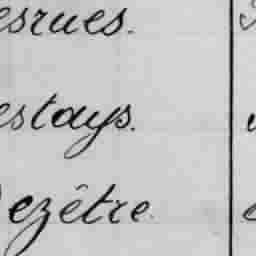 esrues.
estays.
Dezêtre